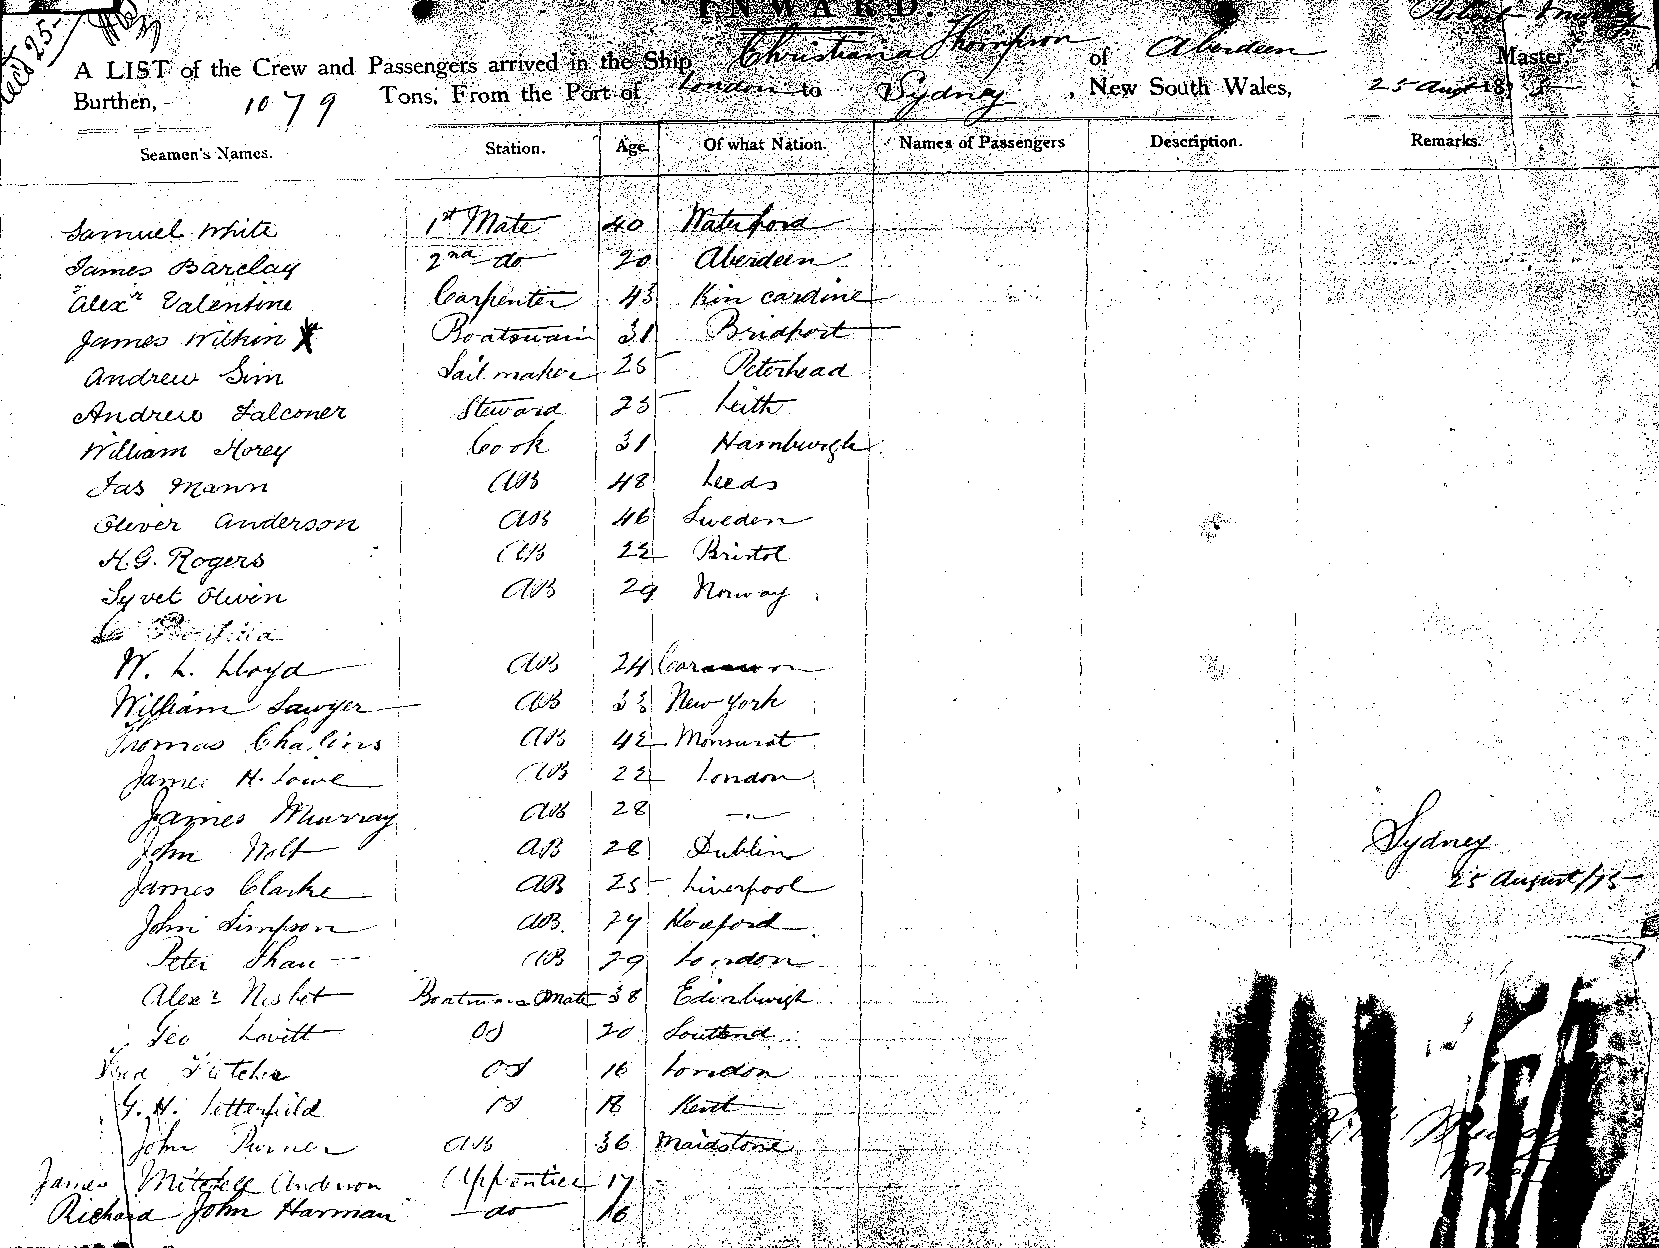 INWARD.
Recd 25
A LIST of the Crew and Passengers arrived in the Ship Christiana Thompson of Aberdeen Robert Murray Master,
Burthen, 1079 Tons, From the Port of London to Sydney, New South Wales, 25 Augt 1875
Seamen's Names. Station. Age. Of what Nation. Names of Passengers Description. Remarks.
Samuel White 1st Mate 40 Waterford
James Barclay 2nd do 20 Aberdeen
Alexr Valentine Carpenter 43 Kincardine
James Wilkin X Boatswain 31 Bridport
Andrew Sim Sailmaker 25 Peterhead
Andrew Falconer Steward 25 Leith
William Horey Cook 31 Hamburgh
Jas Mann AB 48 Leeds
Oliver Anderson AB 46 Sweden
H.G. Rogers AB 22 Bristol
Syvet Olwin AB 29 Norway
W. L. Lloyd AB 24
William Sawyer AB 33 New York
Thomas AB 42 Monsurat
James H. Lowe AB 22 London
James Murray AB 28 -"-
John Holt AB 28 Dublin
James Clarke AB 25 Liverpool
Sydney
25 August/75
John Simpson AB. 24 Hereford
Peter Shaw AB 29 London
Alexr Nisbet Boatswains Mate 38 Edinburgh
Geo Lovitt OS 20 Southend
Fred Fletcher OS 16 London
G. H. Setterfield OS 18 Kent
John Turner AB 36 Maidstone
James Mitchell Anderson Apprentice 17
Richard John Harman do 16